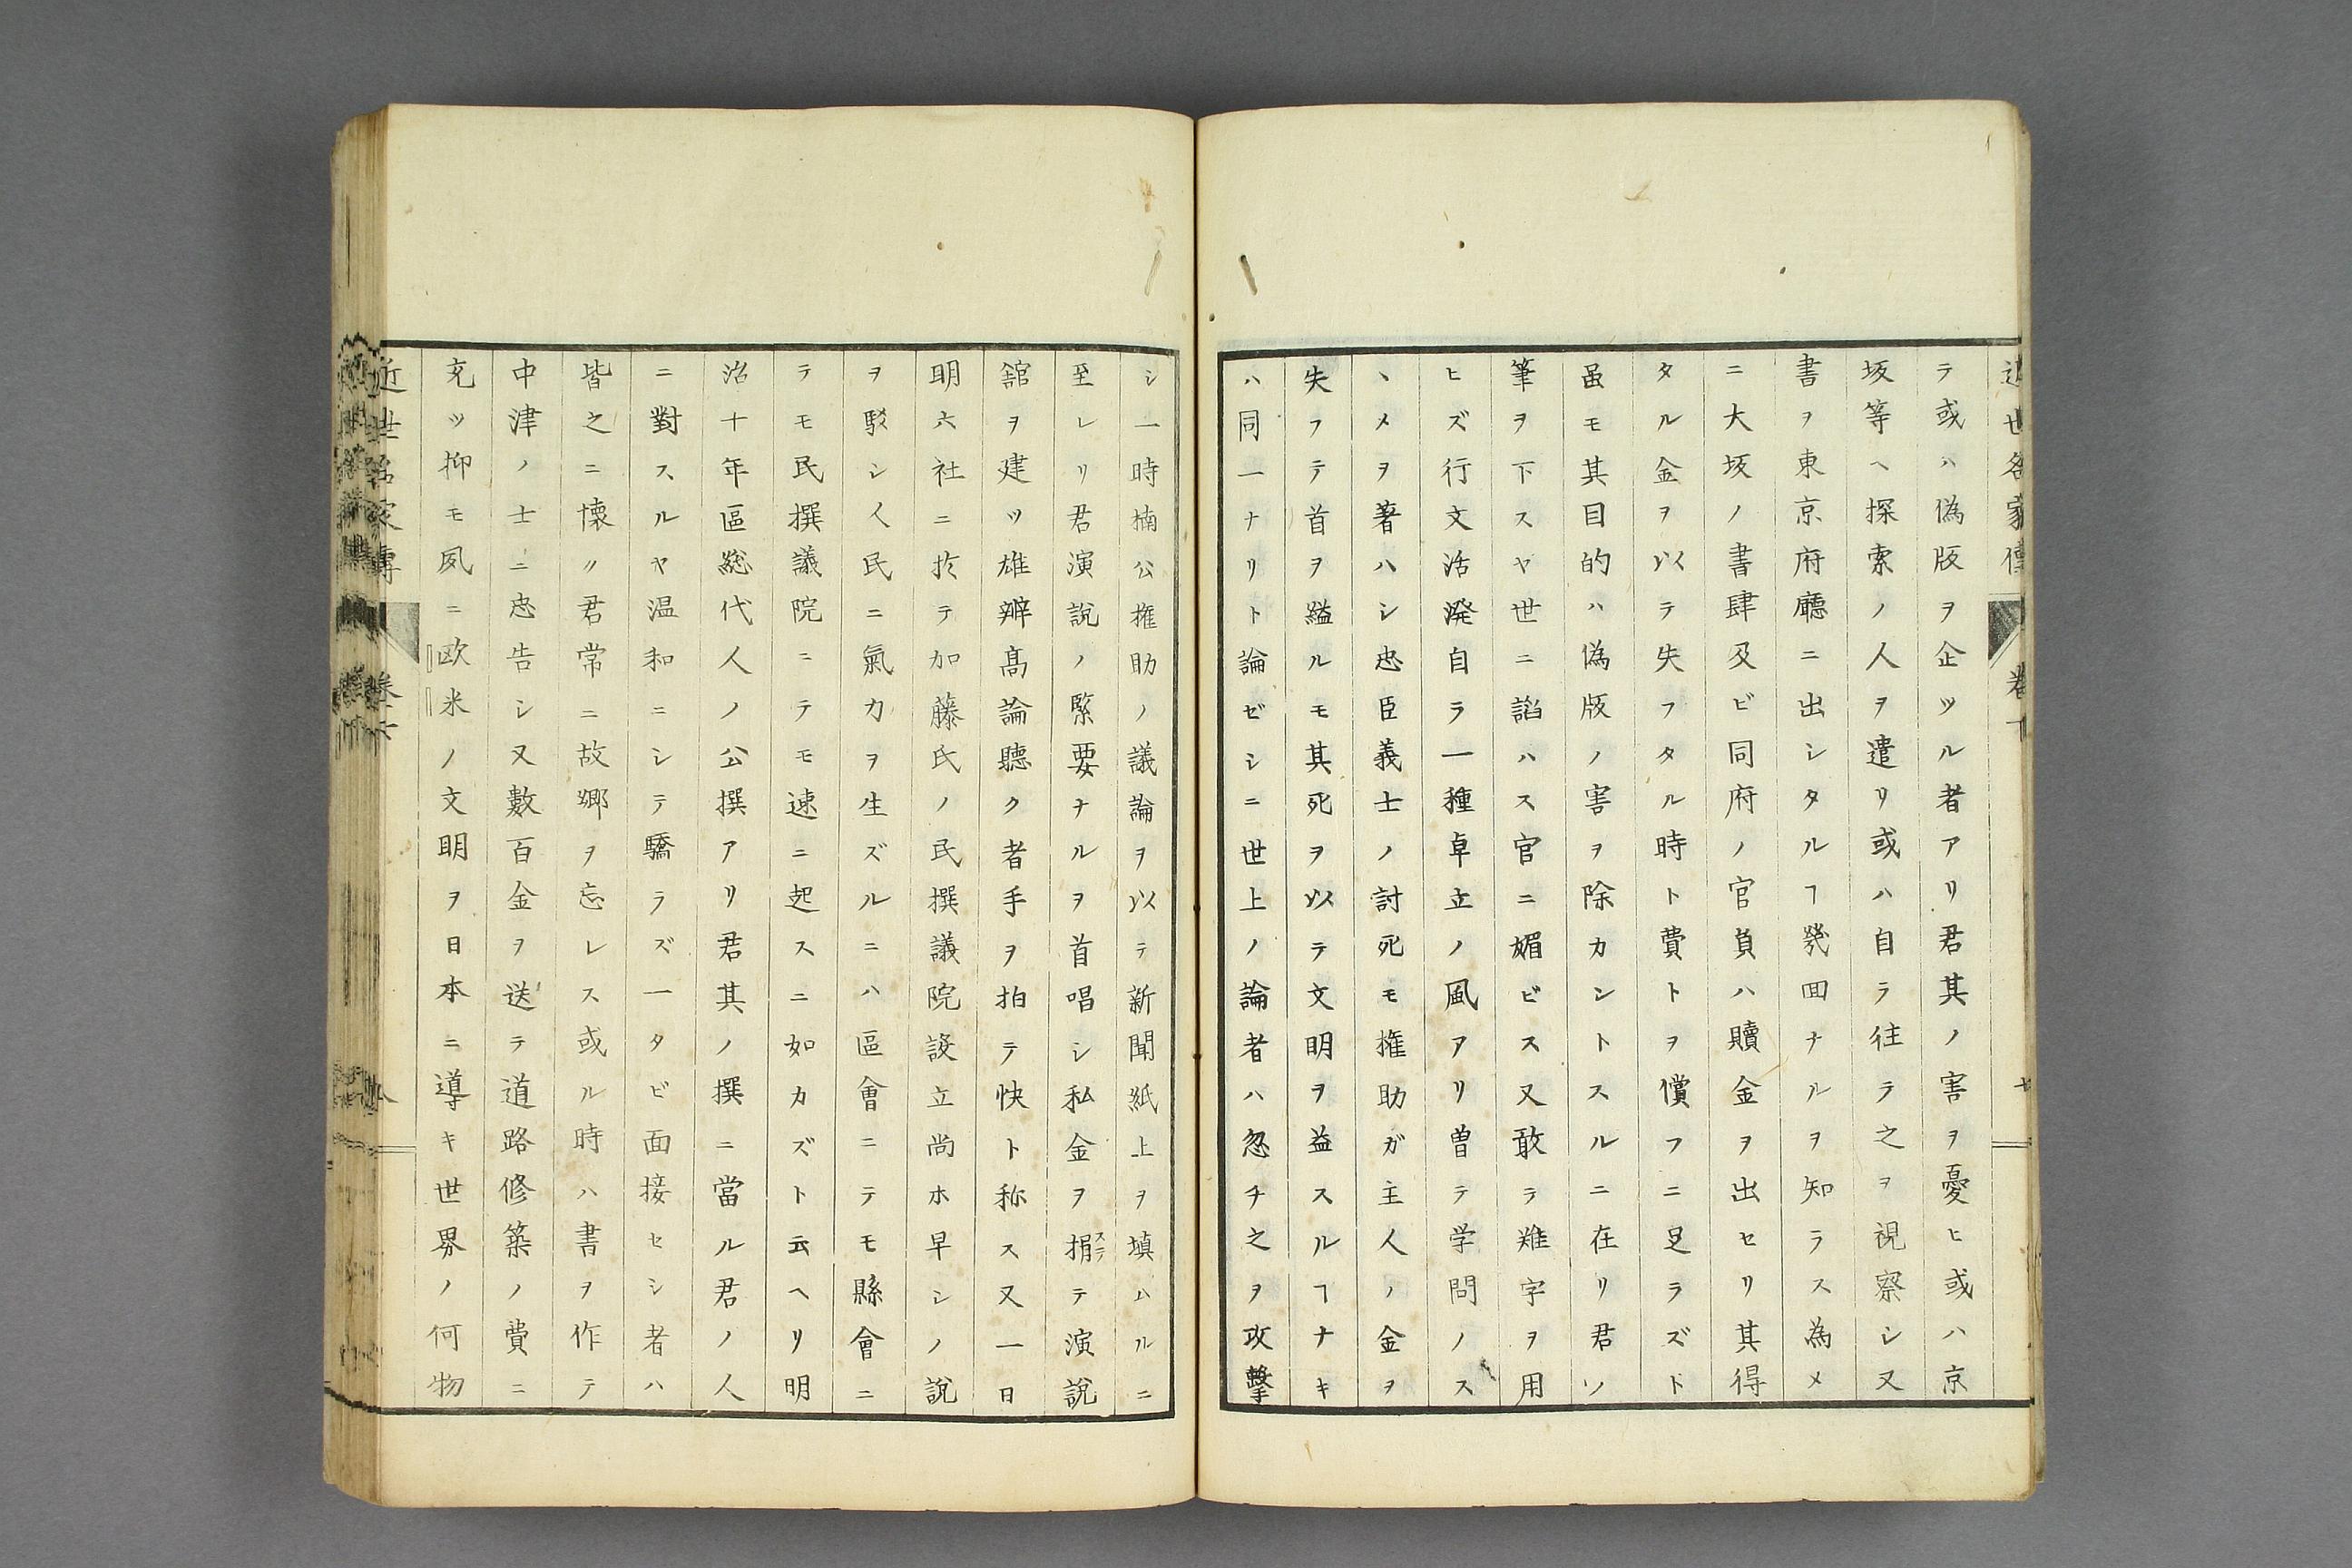 ラ或ハ偽版ヲ企ツル者アリ君其ノ害ヲ憂ヒ或ハ京
坂等ヘ探索ノ人ヲ遣リ或ハ自ラ往ラ之ヲ視察シ又
書ヲ東京府廳ニ出シタルヿ幾回ナルヲ知ラス為メ
ニ大坂ノ書肆及ビ同府ノ官員ハ贖金ヲ出セリ其得
タル金ヲ以テ失フタル時ト費トヲ償フニ足ラズト
虽モ其目的ハ偽版ノ害ヲ除カントスルニ在リ君ソ
筆ヲ下スヤ世ニ謟ハス官ニ媚ビス又敢ラ難字ヲ用
ヒズ行文活溌自ラ一種卓立ノ風アリ曽テ学問ノス
ヽメヲ著ハシ忠臣義士ノ討死モ権助ガ主人ノ金ヲ
失フテ首ヲ縊ルモ其死ヲ以テ文明ヲ益スルヿナキ
ハ同一ナリト論ゼシニ世上ノ論者ハ忽チ之ヲ攻擊
シ一時楠公権助ノ議論ヲ以テ新聞紙上ヲ填ムルニ
至レリ君演説ノ緊要ナルヲ首唱シ私金ヲ捐ステテ演説
舘ヲ建ツ雄辨髙論聽ク者手ヲ拍テ快ト称ス又一日
明六社ニ於テ加藤氏ノ民撰議院設立尚ホ早シノ說
ヲ駁シ人民ニ氣力ヲ生ズルニハ區會ニテモ縣會ニ
テモ民撰議院ニテモ速ニ起スニ如カズト云ヘリ明
治十年區総代人ノ公撰アリ君其ノ撰ニ當ル君ノ人
ニ對スルヤ温和ニシテ驕ラズ一タビ面接セシ者ハ
皆之ニ懐ク君常ニ故郷ヲ忘レス或ル時ハ書ヲ作テ
中津ノ士ニ忠告シ又數百金ヲ送テ道路修築ノ費ニ
充ツ抑モ夙ニ欧米ノ文明ヲ日本ニ導キ世界ノ何物
近世名家傳